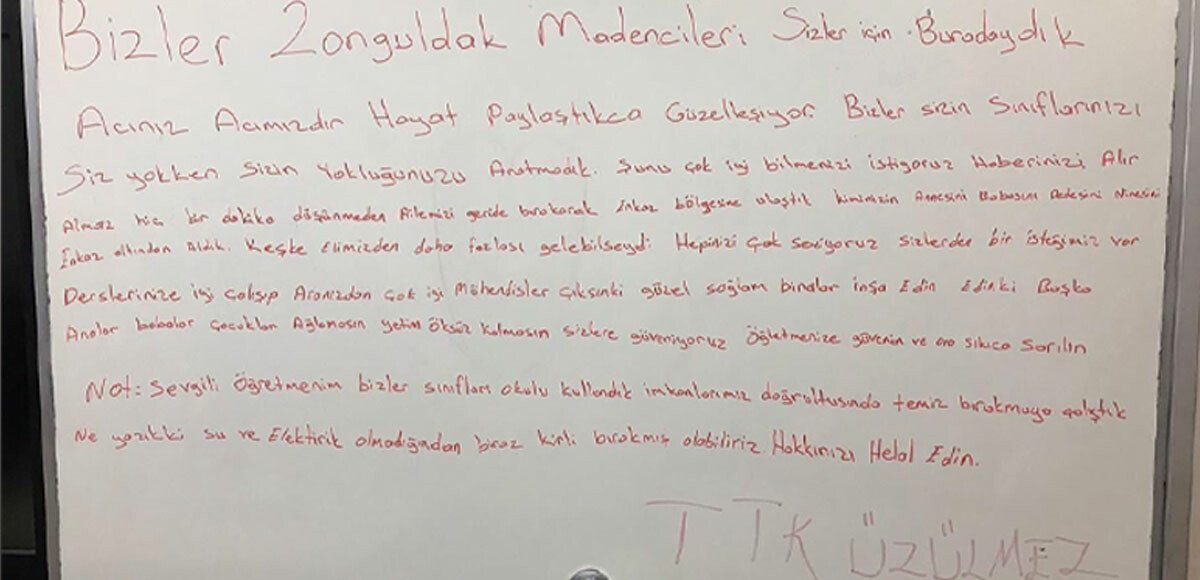 Bizler Zonguldak Madencileri Sizler için Buradaydık
Acınız Acımızdır Hayat Paylaştıkca Güzelleşiyor. Bizler sizin Sınıflarınızı
Siz yokken Sizin Yokluğunuzu Aratmadık. Şunu çok iyi bilmenizi istiyoruz Haberinizi Alır
Almaz hiç bir dakika düşünmeden Ailemizi geride bırakarak Enkaz bölgesine ulaştık kimimizin Annesini Babasını Dedesini Ninesini
Enkaz altından Aldık. Keşke Elimizden daha fazlası gelebilseydi Hepinizi Çok Seviyoruz sizlerden bir isteğimiz var
Derslerinize iyi çalışıp Aranızdan çok iyi Mühendisler Çıksınki güzel sağlam binalar inşa Edin Edinki Başka
Analar babalar Çocuklar Ağlamasın yetim öksüz kalmasın sizlere güveniyoruz Öğretmenize güvenin ve ona sıkıca Sarılın
Not: Sevgili Öğretmenim bizler sınıfları okulu kullandık imkanlarımız doğrultusunda temiz bırakmaya çalıştık
Ne yazıkki su ve Elektirik olmadığından biraz kirli bırakmış olabiliriz. Hakkınızı Helal Edin.
TTK ÜZÜLMEZ